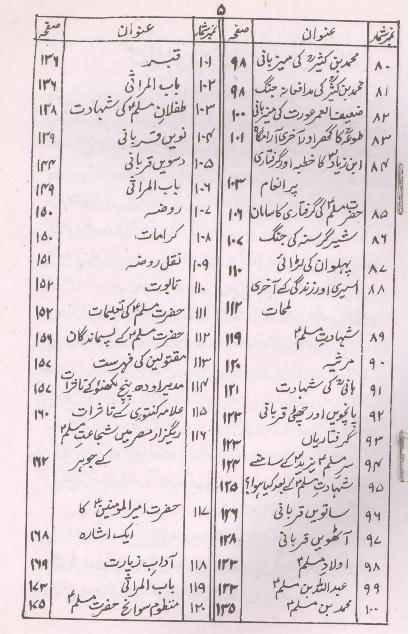 ۵
نمبر شمار عنوان صفحہ
۸۰ محمد بن کثیرؒ کی میزبانی ۹۸
۸۱ محمد بن کثیرؒ کی مدافعانہ جنگ ۹۸
۸۲ ضعیف العمر عورت کی میزبانی ۱۰۰
۸۳ طوعہؒ کا گھر اور آخری آرامگاہ ۱۰۱
۸۴ ابن زیاد کا خطبہ اور گرفتاری
پر انعام ۱۰۳
۸۵ حضرت مسلمؑ کی گرفتاری کا سامان ۱۰۶
۸۶ شیر گرسنہ کی جنگ ۱۰۷
۸۷ پہلوان کی لڑائی ۱۱۰
۸۸ اسیری اور زندگی کے آخری
لمحات ۱۱۲
۸۹ شہادت مسلمؑ ۱۱۹
۹۰ مرثیہ ۱۲۰
۹۱ ہانیؒ کی شہادت ۱۲۱
۹۲ پانچویں اور چھٹی قربانی ۱۲۳
۹۳ گرفتاریاں ۱۲۳
۹۴ سر مسلمؑ یزید کے سامنے ۱۲۴
۹۵ شہادت مسلمؑ کے بعد کیا ہوا؟ ۱۲۵
۹۶ ساتویں قربانی ۱۲۶
۹۷ آٹھویں قربانی ۱۲۸
۹۸ اولاد مسلمؑ ۱۳۳
۹۹ عبداللہ بن مسلمؑ ۱۳۳
۱۰۰ محمد بن مسلمؑ ۱۳۵
نمبر شمار عنوان صفحہ
۱۰۱ قبر ۱۳۶
۱۰۲ باب المراثی ۱۳۶
۱۰۳ طفلان مسلمؑ کی شہادت ۱۳۸
۱۰۴ نویں قربانی ۱۳۹
۱۰۵ دسویں قربانی ۱۴۴
۱۰۶ باب المراثی ۱۴۹
۱۰۷ روضہ ۱۵۰
۱۰۸ کرامات ۱۵۰
۱۰۹ نقل روضہ ۱۵۱
۱۱۰ تابوت ۱۵۲
۱۱۱ حضرت مسلمؑ کی تعلیمات ۱۵۲
۱۱۲ حضرت مسلمؑ کے پسماندگان ۱۵۶
۱۱۳ مقتولین کی فہرست ۱۵۷
۱۱۴ مدیر اودھ پنچ لکھنؤ کے تاثرات ۱۵۷
۱۱۵ علامہ کنتوری کے تاثرات ۱۶۰
۱۱۶ ریگزار مصر میں شجاعت مسلمؑ
کے جوہر ۱۶۲
۱۱۷ حضرت امیر المومنینؑ کا
ایک اشارہ ۱۶۸
۱۱۸ آداب زیارت ۱۶۹
۱۱۹ باب المراثی ۱۷۳
۱۲۰ منظوم سوانح حضرت مسلمؑ ۱۷۵